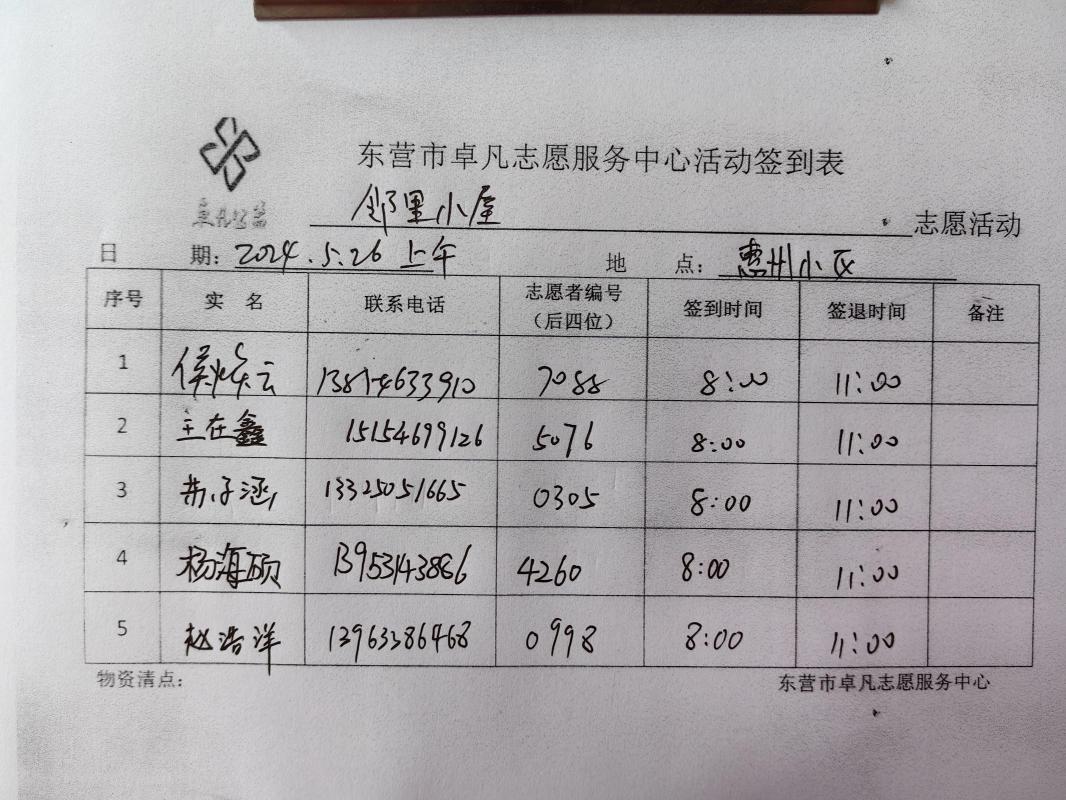 卓凡公益
东营市卓凡志愿服务中心活动签到表
邻里小屋 志愿活动
日 期：2024.5.26 上午 地 点：惠州小区
序号 实 名 联系电话 志愿者编号（后四位） 签到时间 签退时间 备注
1 侯焕云 13814633910 7088 8:00 11:00
2 王在鑫 15154699126 5076 8:00 11:00
3 井子涵 13325051665 0305 8:00 11:00
4 杨海硕 13953143886 4260 8:00 11:00
5 赵浩洋 13963386468 0998 8:00 11:00
物资清点： 东营市卓凡志愿服务中心